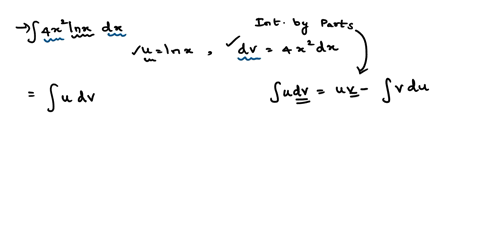 →∫4x²lnx dx
Int. by Parts
✓u=lnx, ✓dv=4x²dx
= ∫u dv
∫udv = uv - ∫vdu